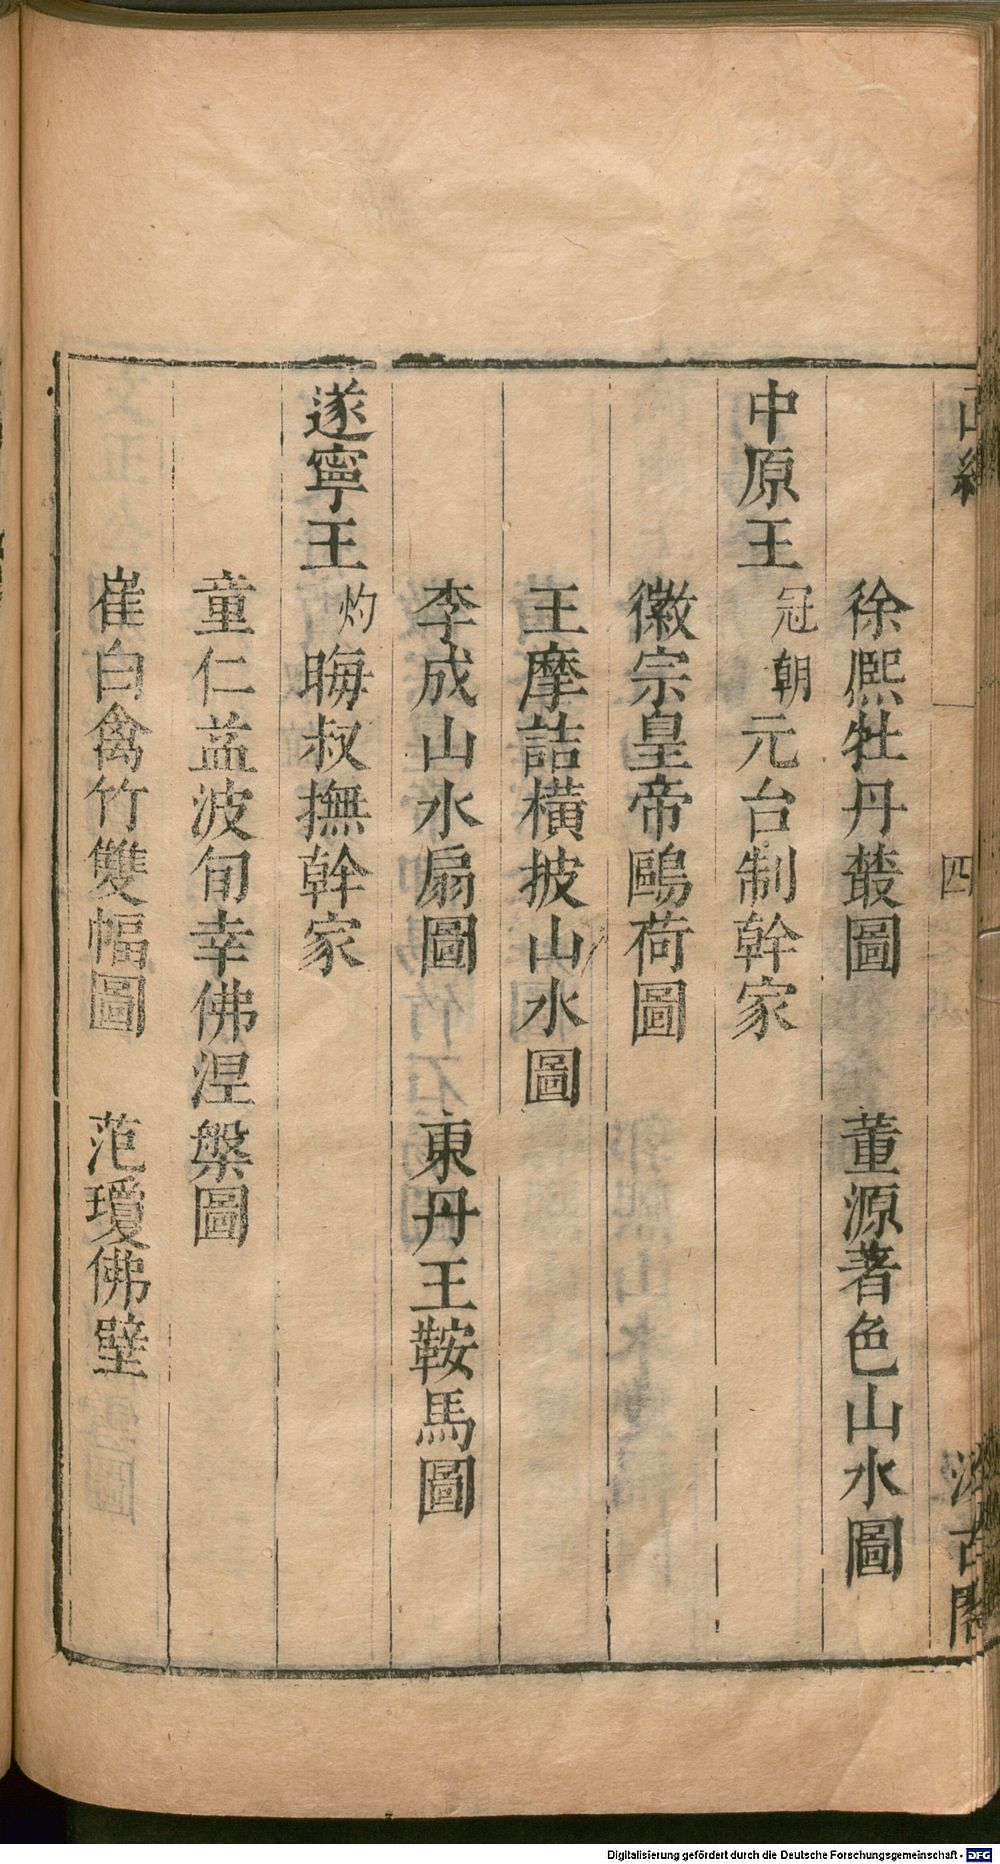 四
徐熙牡丹叢圖　董源著色山水圖
中原王冠朝元台制幹家
徽宗皇帝鷗荷圖
王摩詰橫披山水圖
李成山水扇圖　東丹王鞍馬圖
遂寧王灼晦叔撫幹家
童仁益波旬幸佛涅槃圖
崔白禽竹雙幅圖　范瓊佛壁
Digitalisierung gefördert durch die Deutsche Forschungsgemeinschaft - DFG